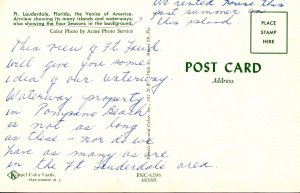 We rented house this
past summer on
this island
Ft. Lauderdale, Florida, the Venice of America.
Airview showing its many islands and waterways;
also showing the Four Seasons in the background.
Color Photo by Acme Photo Service
PLACE
STAMP
HERE
This view of Ft Laud
will give you some
idea of our waterway.
Waterway property
in Pompano Beach
is not as long
as these - nor do we
have as many as are
in the Ft Lauderdale area.
POST CARD
Address
Koppel Color Cards,
Hawthorne, N. J.
ENC-4296
46568